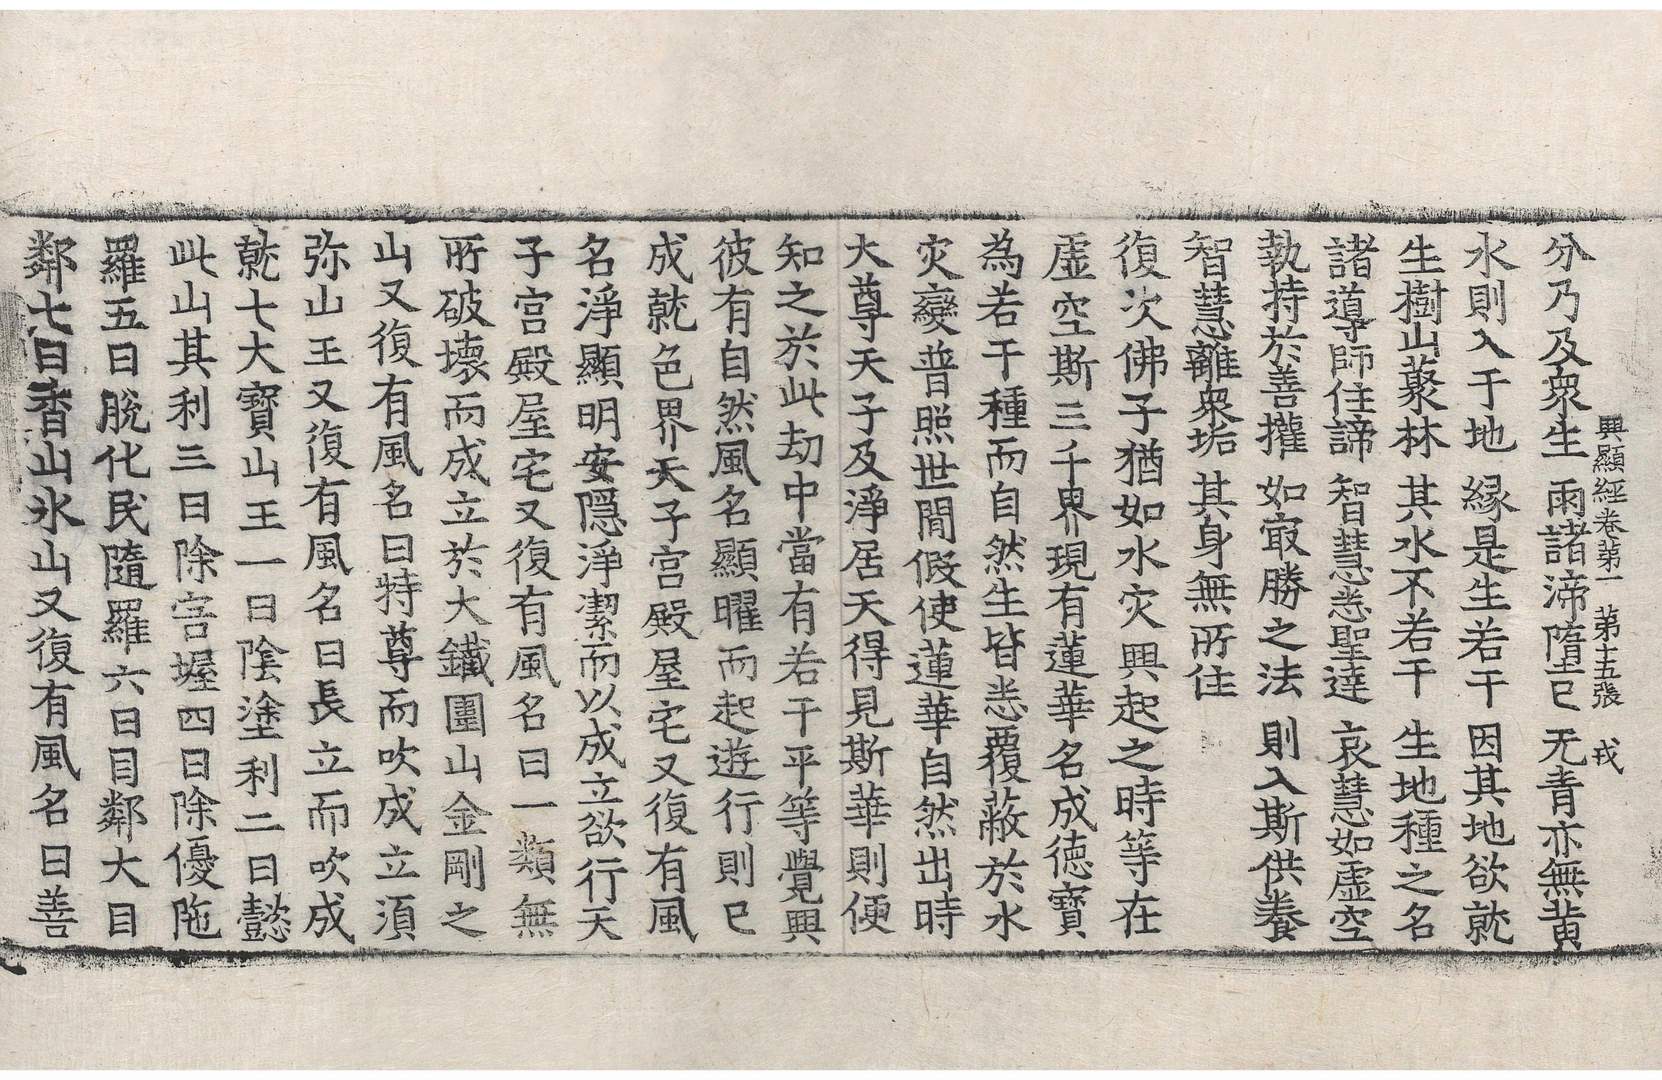 興顯經卷第一 第十五張 戎
分乃及衆生 雨諸渧墮已 无青亦無黄
水則入于地 縁是生若干 因其地欲就
生樹山藂林 其水不若干 生地種之名
諸導師住諦 智慧悉聖達 哀慧如虛空
執持於善權 如㝡勝之法 則入斯供養
智慧離衆垢 其身無所住
復次佛子猶如水灾興起之時等在
虛空斯三千界現有蓮華名成德寶
為若干種而自然生皆悉覆蔽於水
灾變普照世間假使蓮華自然出時
大尊天子及淨居天得見斯華則便
知之於此劫中當有若干平等覺興
彼有自然風名顯曜而起遊行則已
成就色界天子宮殿屋宅又復有風
名淨顯明安隱淨潔而以成立欲行天
子宮殿屋宅又復有風名曰一類無
所破壞而成立於大鐵圍山金剛之
山又復有風名曰特尊而吹成立須
弥山王又復有風名曰長立而吹成
就七大寶山王一曰陰塗利二曰懿
此山其利三曰除害握四曰除優陁
羅五曰脫化民隨羅六曰目鄰大目
鄰七曰香山氷山又復有風名曰善